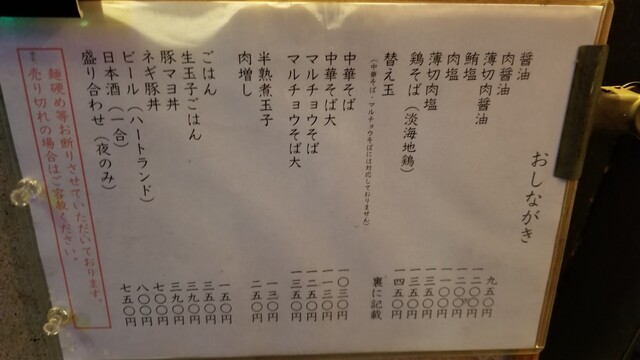 おしながき
醤油 九五〇円
肉醤油 一二〇〇円
薄切肉醤油 一二〇〇円
鮪塩 一一〇〇円
肉塩 一三五〇円
薄切肉塩 一三五〇円
鶏そば（淡海地鶏） 一四五〇円
替え玉 裏に記載
（中華そば・マルチョウそばには対応しておりません）
中華そば 一〇三〇円
中華そば大 一一三〇円
マルチョウそば 一二五〇円
マルチョウそば大 一三五〇円
半熟煮玉子 一三〇円
肉増し 二五〇円
ごはん 一五〇円
生玉子ごはん 三五〇円
豚マヨ丼 三九〇円
ネギ豚丼 三九〇円
ビール（ハートランド） 七〇〇円
日本酒（一合） 八〇〇円
盛り合わせ（夜のみ） 七五〇円
麺硬め等お断りさせていただいております。
売り切れの場合はご容赦ください。